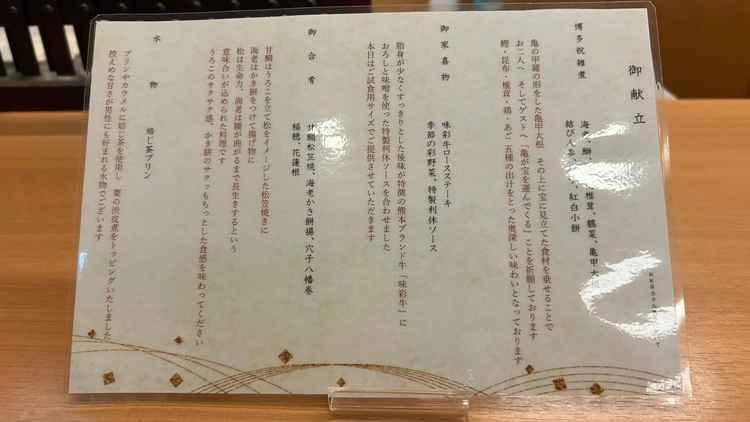 御献立
博多祝雑煮
海老、鰤、
椎茸、鶴菜、亀甲大
結び人参
、紅白小餅
亀の甲羅の形をした亀甲大根 その上に宝に見立てた食材を乗せることで
お二人へ そしてゲストへ「亀が宝を運んでくる」ことを祈願しております
鰹・昆布・椎茸・鶏・あご 五種の出汁をとった奥深い味わいとなっております
御家喜物
味彩牛ロースステーキ
季節の彩野菜、特製利休ソース
脂身が少なくすっきりとした後味が特徴の熊本ブランド牛「味彩牛」に
おろしと味噌を使った特製利休ソースを合わせました
本日はご試食用サイズでご提供させていただきます
御合肴
甘鯛松笠焼、海老かき餅揚、穴子八幡巻
稲穂、花蓮根
甘鯛はうろこを立て松をイメージした松笠焼きに
海老はかき餅をつけて揚げ物に
松は生命力、海老は腰が曲がるまで長生きするという
意味合いが込められた料理です
うろこのサクサク感、かき餅のサクッもちっとした食感を味わってください
水物
焙じ茶プリン
プリンやカラメルに焙じ茶を使用し 栗の渋皮煮をトッピングいたしました
控えめな甘さが男性にも好まれる水物でございます